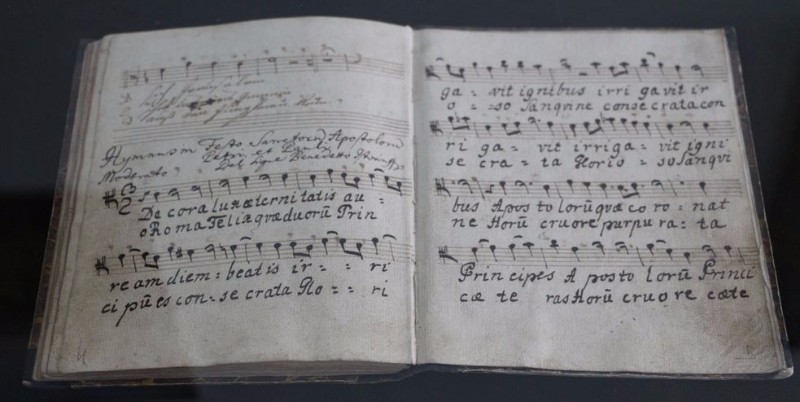 Hymnus in Festo Sanctorum Apostolorū
Petri et Pauli
Moderato Del Sigre Benedetto
De cora lux æternitatis au -
o Roma Felix quæ duorū Prin
re am diem - beatis ir - - ri
ci pū es con - se crata Glo - - ri
ga - vit ignibus irri gavit ir
o - - so Sanguine conse crata con
ri ga - vit irriga - vit igni
se cra - ta Gloris - so Sangui
bus Apos to lorū quæ co ro - nat
ne Horū cruore purpu ra - ta
Principes A posto lorū Princi
cæ te ras Horū cruore cæte